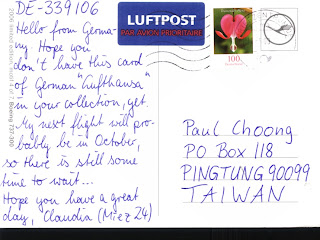 DE-339106
Hello from Germa-
ny. Hope you
don't have this card
of German "Lufthansa"
in your collection, yet.
My next flight will pro-
bably be in October,
so there is still some
time to wait...
Hope you have a great
day, Claudia (Miez 24)
LUFTPOST
PAR AVION PRIORITAIRE
100
Paul Choong
PO Box 118
PINGTUNG 90099
TAIWAN
Boeing 737-300